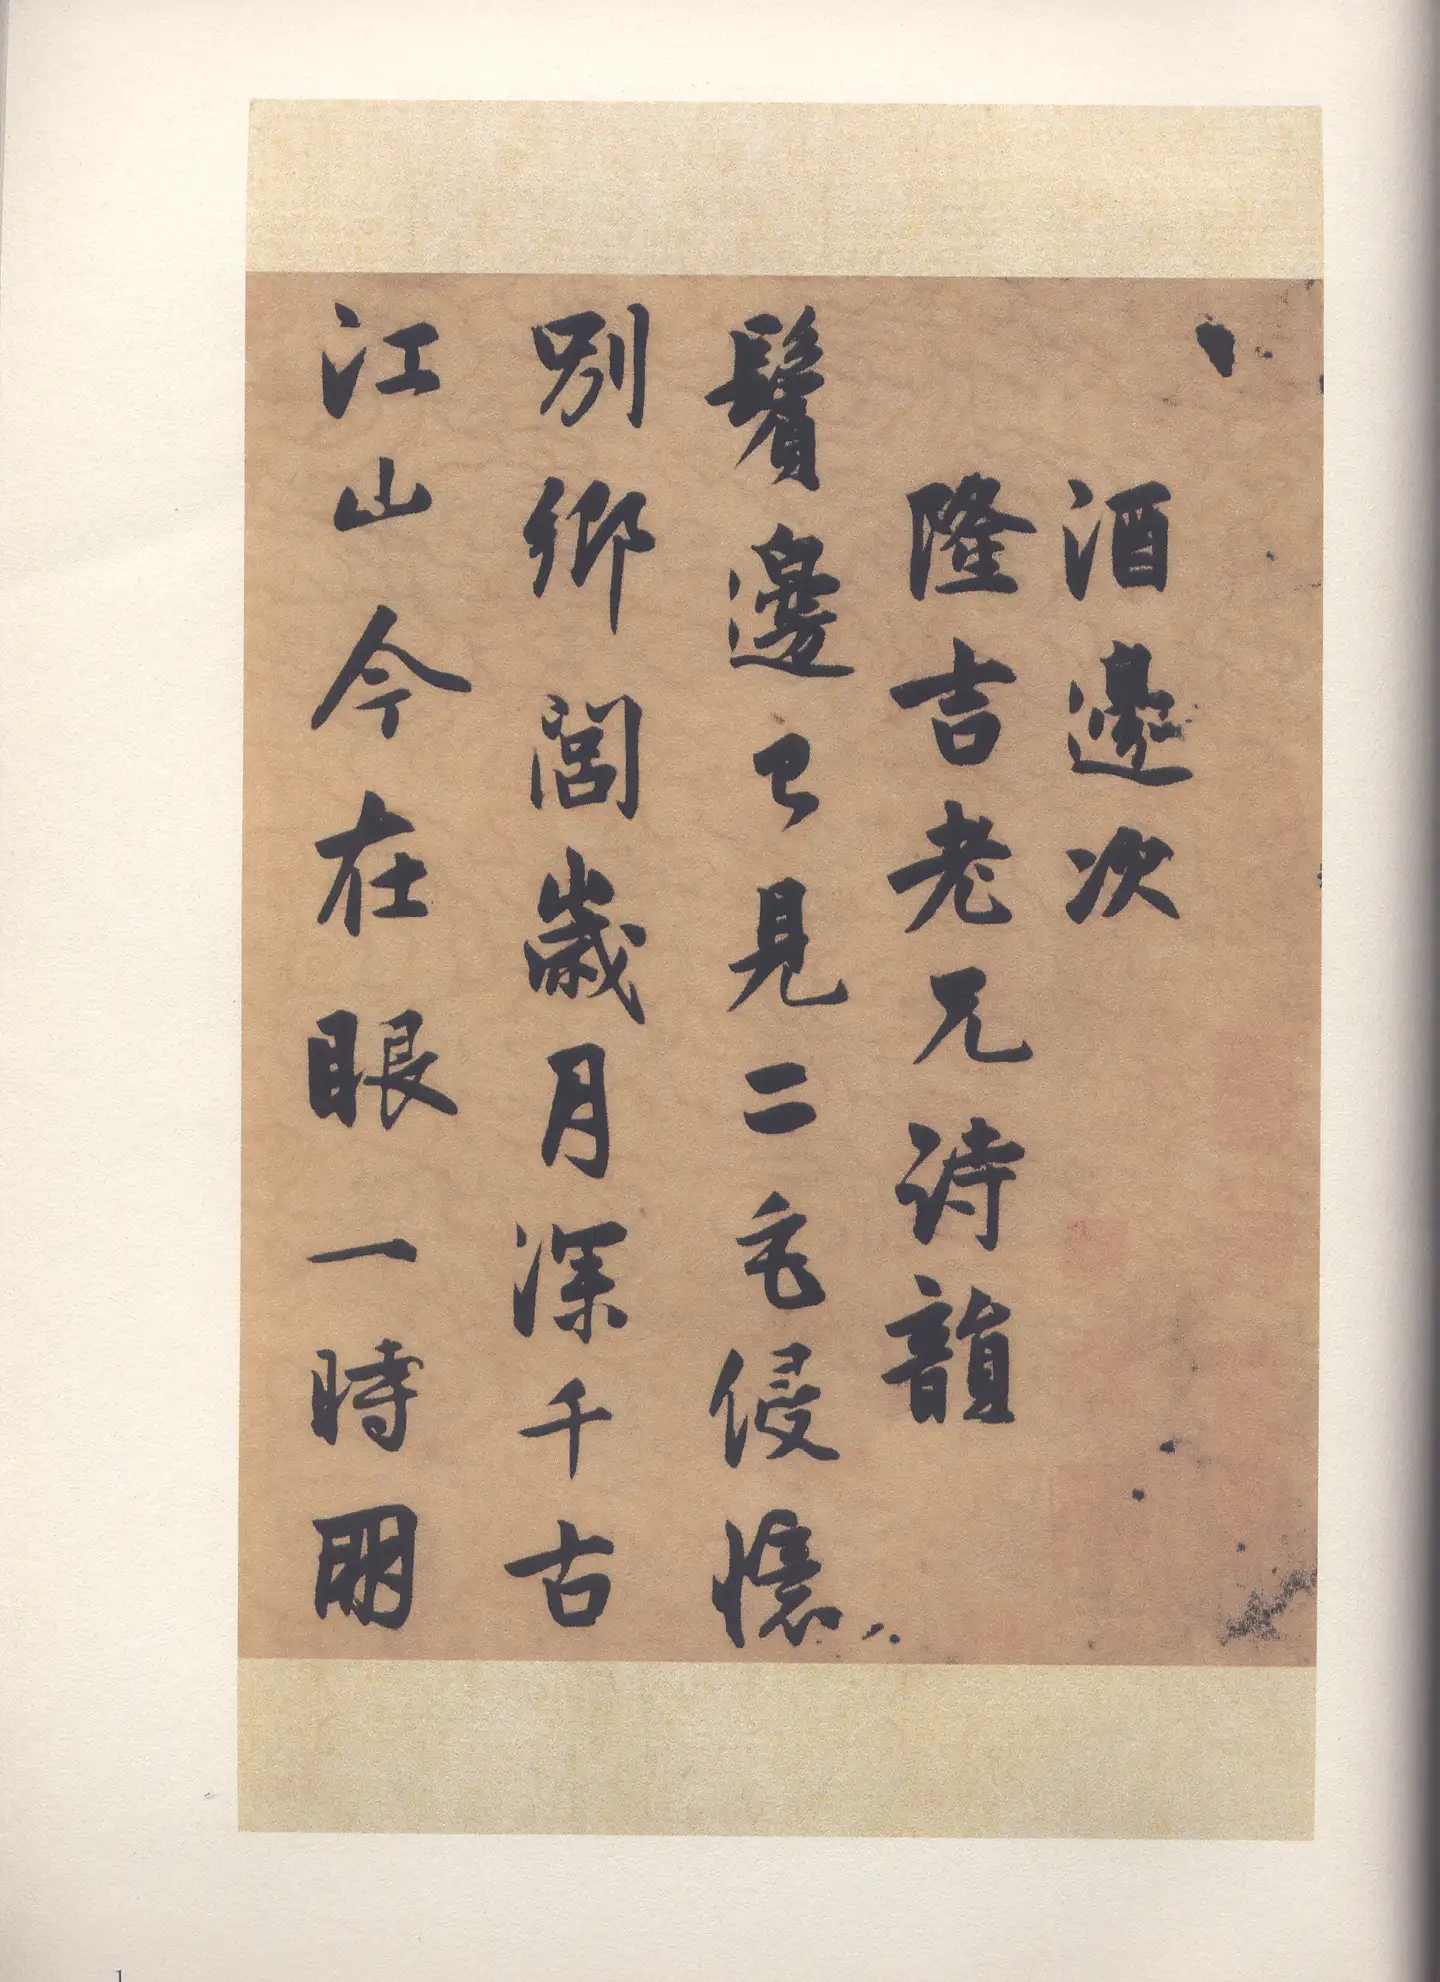 酒邊次
隆吉老兄詩韻
鬢邊已見二毛侵憶
別鄉閭歲月深千古
江山今在眼一時朋
1